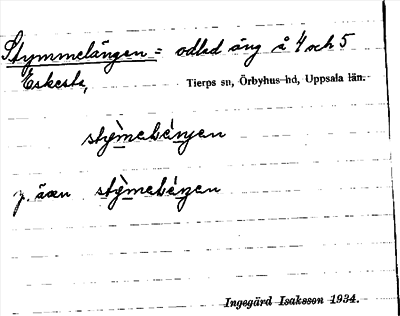 Stymmelängen = odlad äng å 4 och 5
Eskesta,
Tierps sn, Örbyhus hd, Uppsala län.
stỳmelèŋen
j. även stỳmelèŋen
Ingegärd Isaksson 1934.